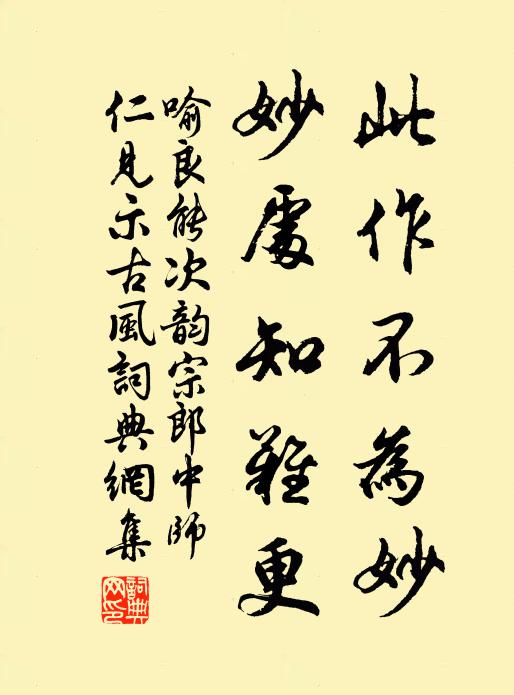 此作不為妙
妙處知難更
喻良能次韵宗郎中師
仁見示古風詞典網集
詞典網印